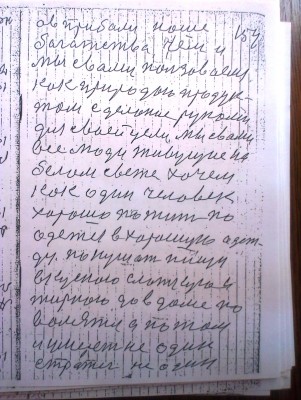 ов прибали наше 154
богатства чем и
мы с вами ползоваем
как природою продук
том сделоное руками
для своей цели мы с вами
все люди живущие на
белом свете хочем
как один человек
хорошо пажит по
одется в хорошую адеж
ду, покушат пищи
вкусного слаткого и
жирного да в доме по
волятся а потом
и умерет не один
стратег не один